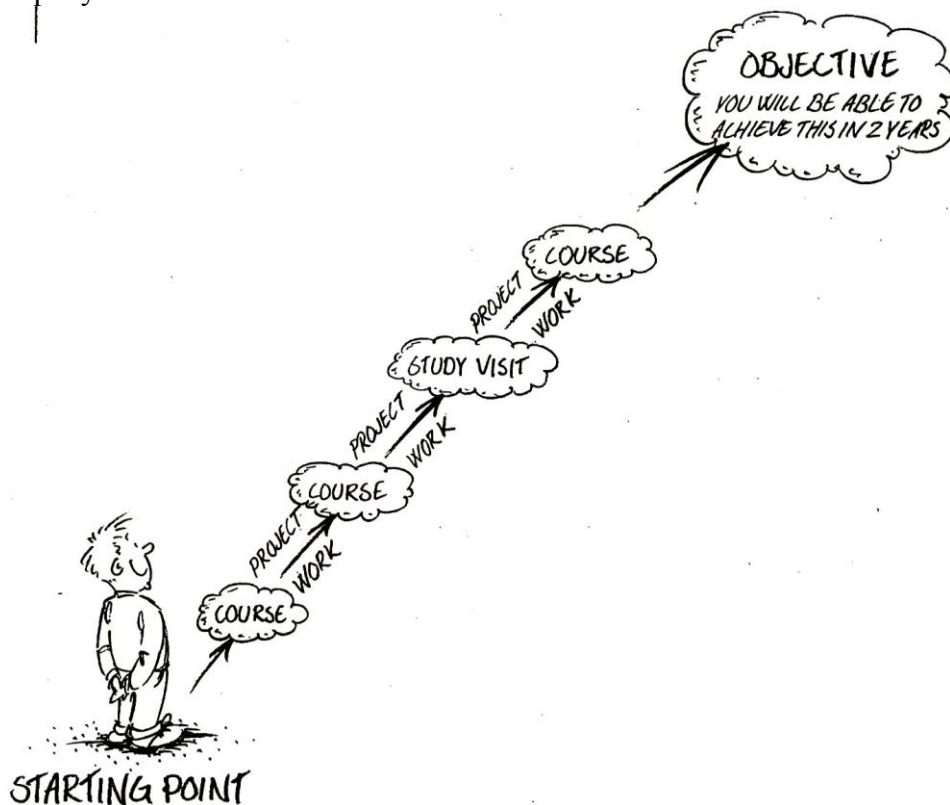 OBJECTIVE
YOU WILL BE ABLE TO
ACHIEVE THIS IN 2 YEARS
COURSE
PROJECT
WORK
STUDY VISIT
PROJECT
WORK
COURSE
PROJECT
WORK
COURSE
STARTING POINT